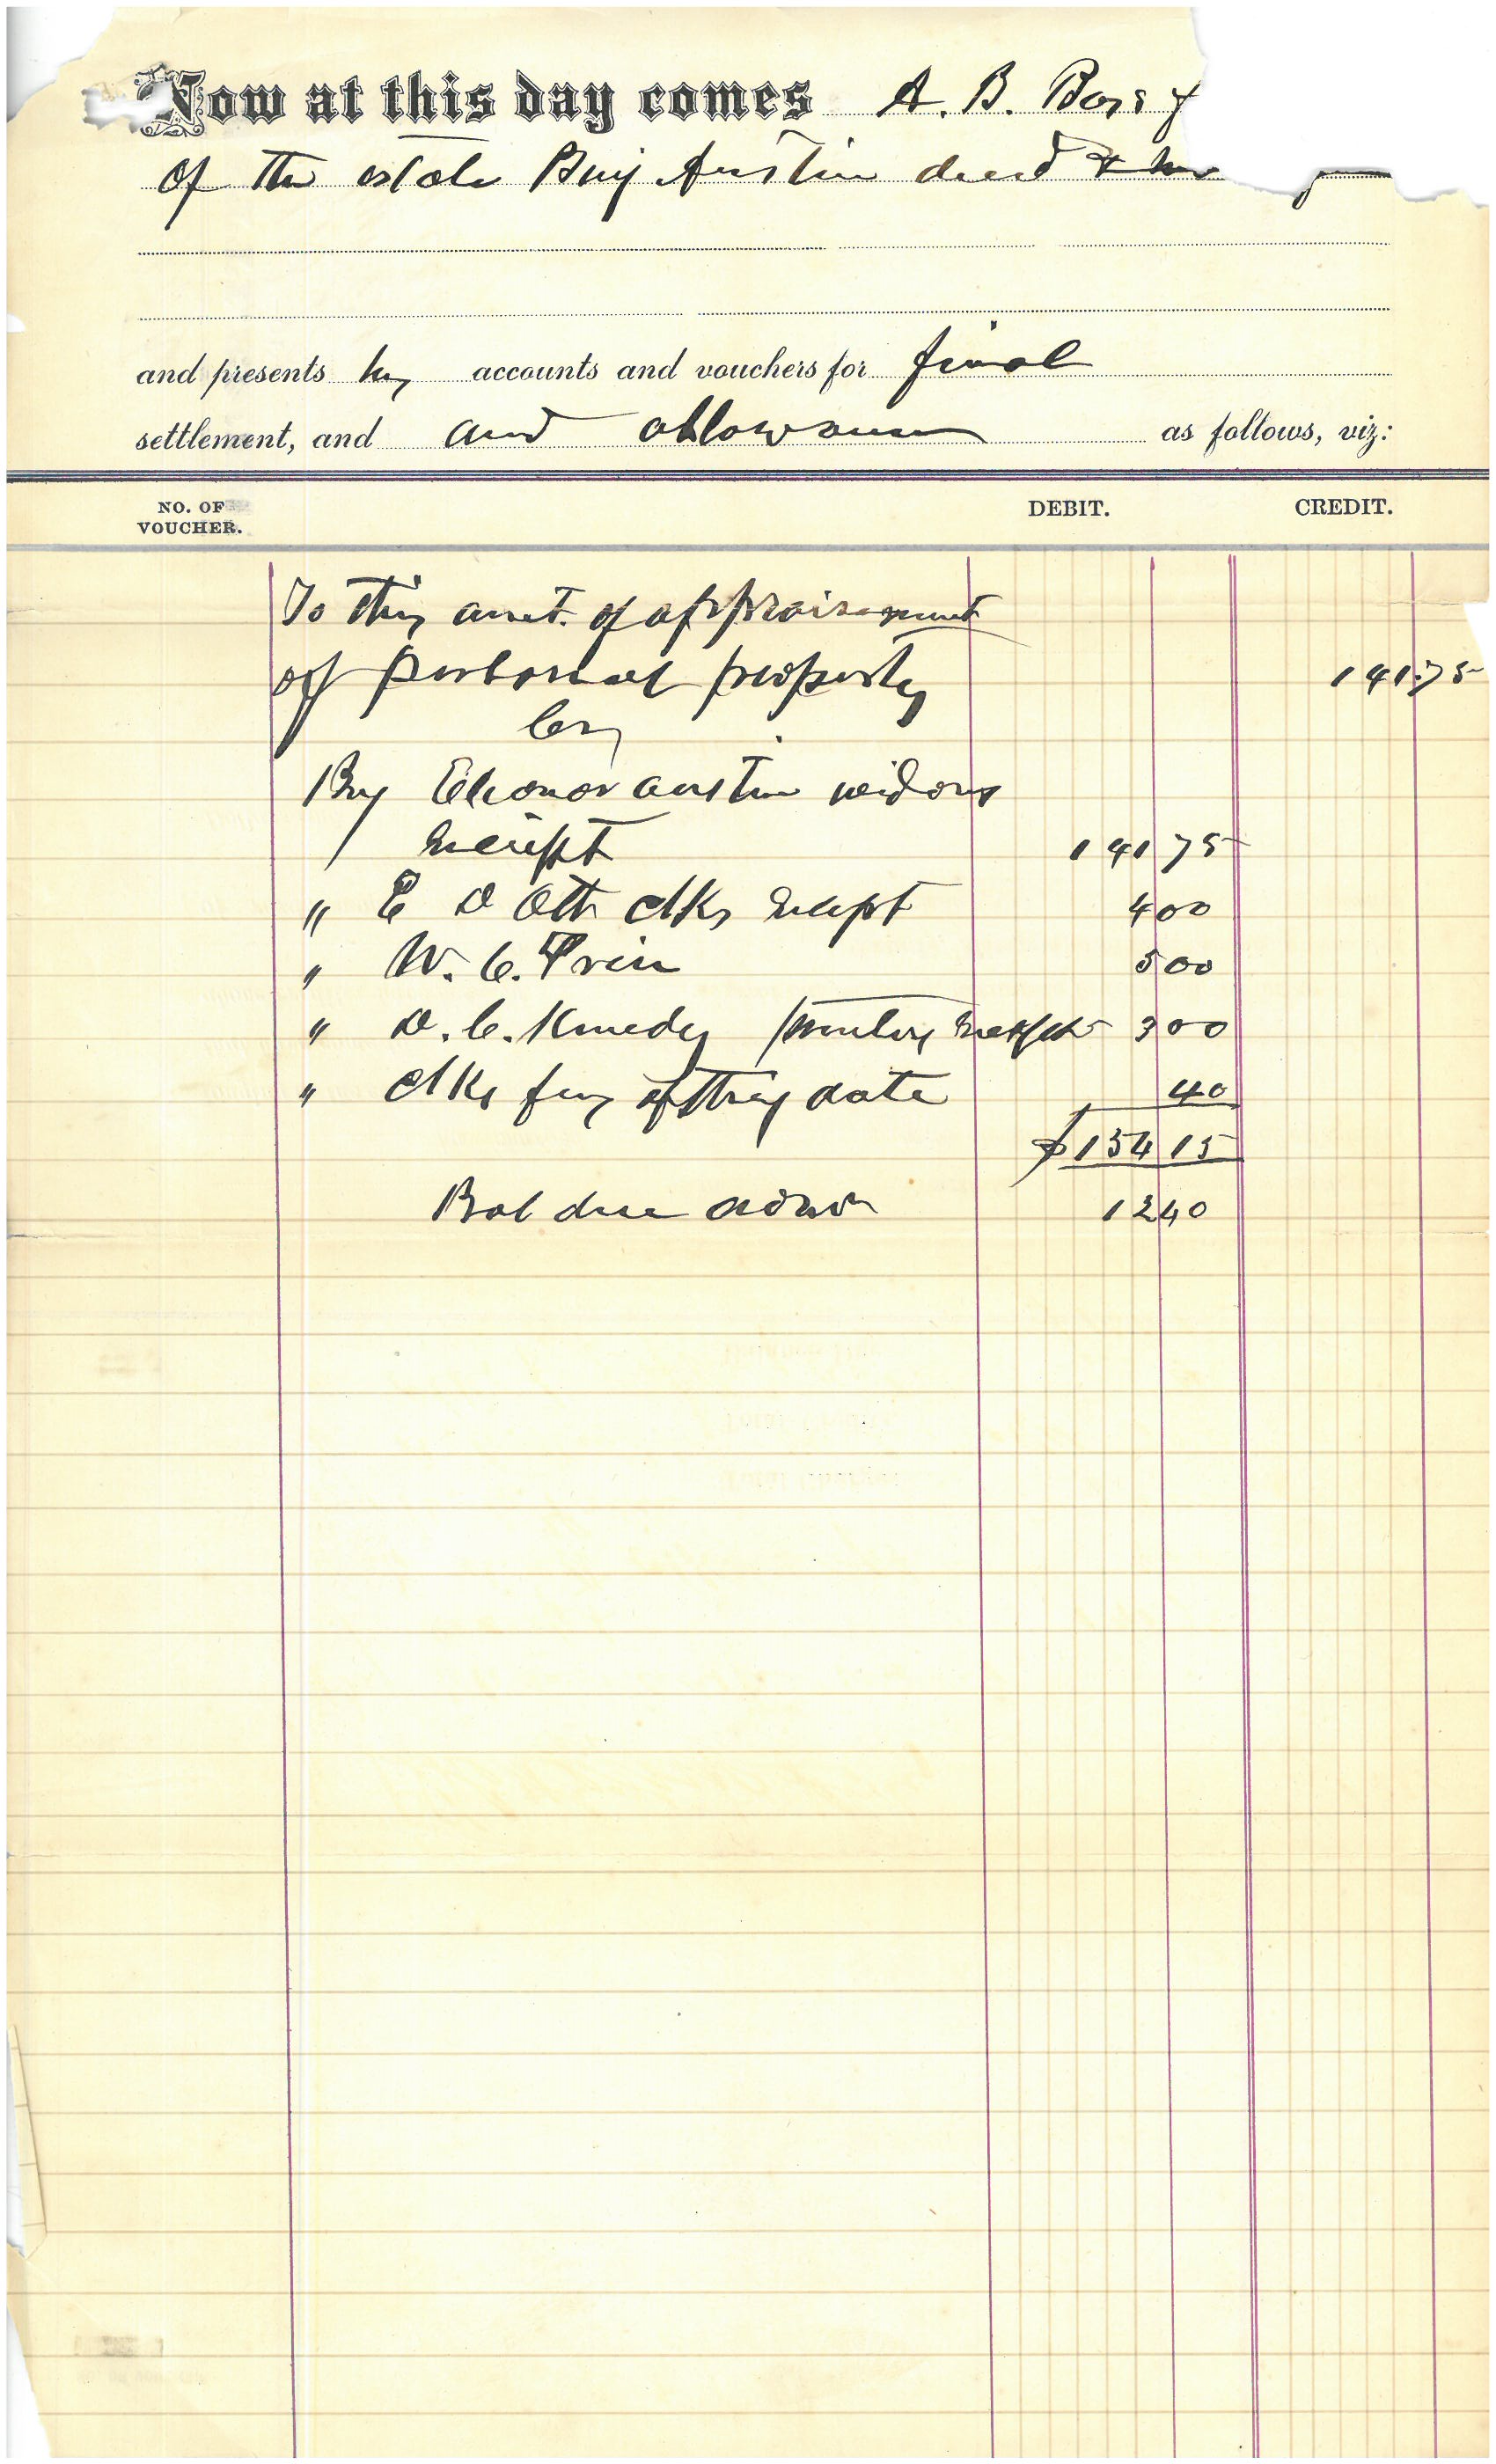 Now at this day comes A. B.
of the estate Benj Austin decd &
and presents his accounts and vouchers for final
settlement, and and allowance as follows, viz:
NO. OF VOUCHER. DEBIT. CREDIT.
To this amt. of appraisement
of personal property 141 75
Cr
By Eleonor Austin widows
receipt 141 75
" E D Ott clks recept 4 00
" W. C. 5 00
" D. C. Kenedy 3 00
" clks fees of this date 40
$154 15
Bal due admr 12 40